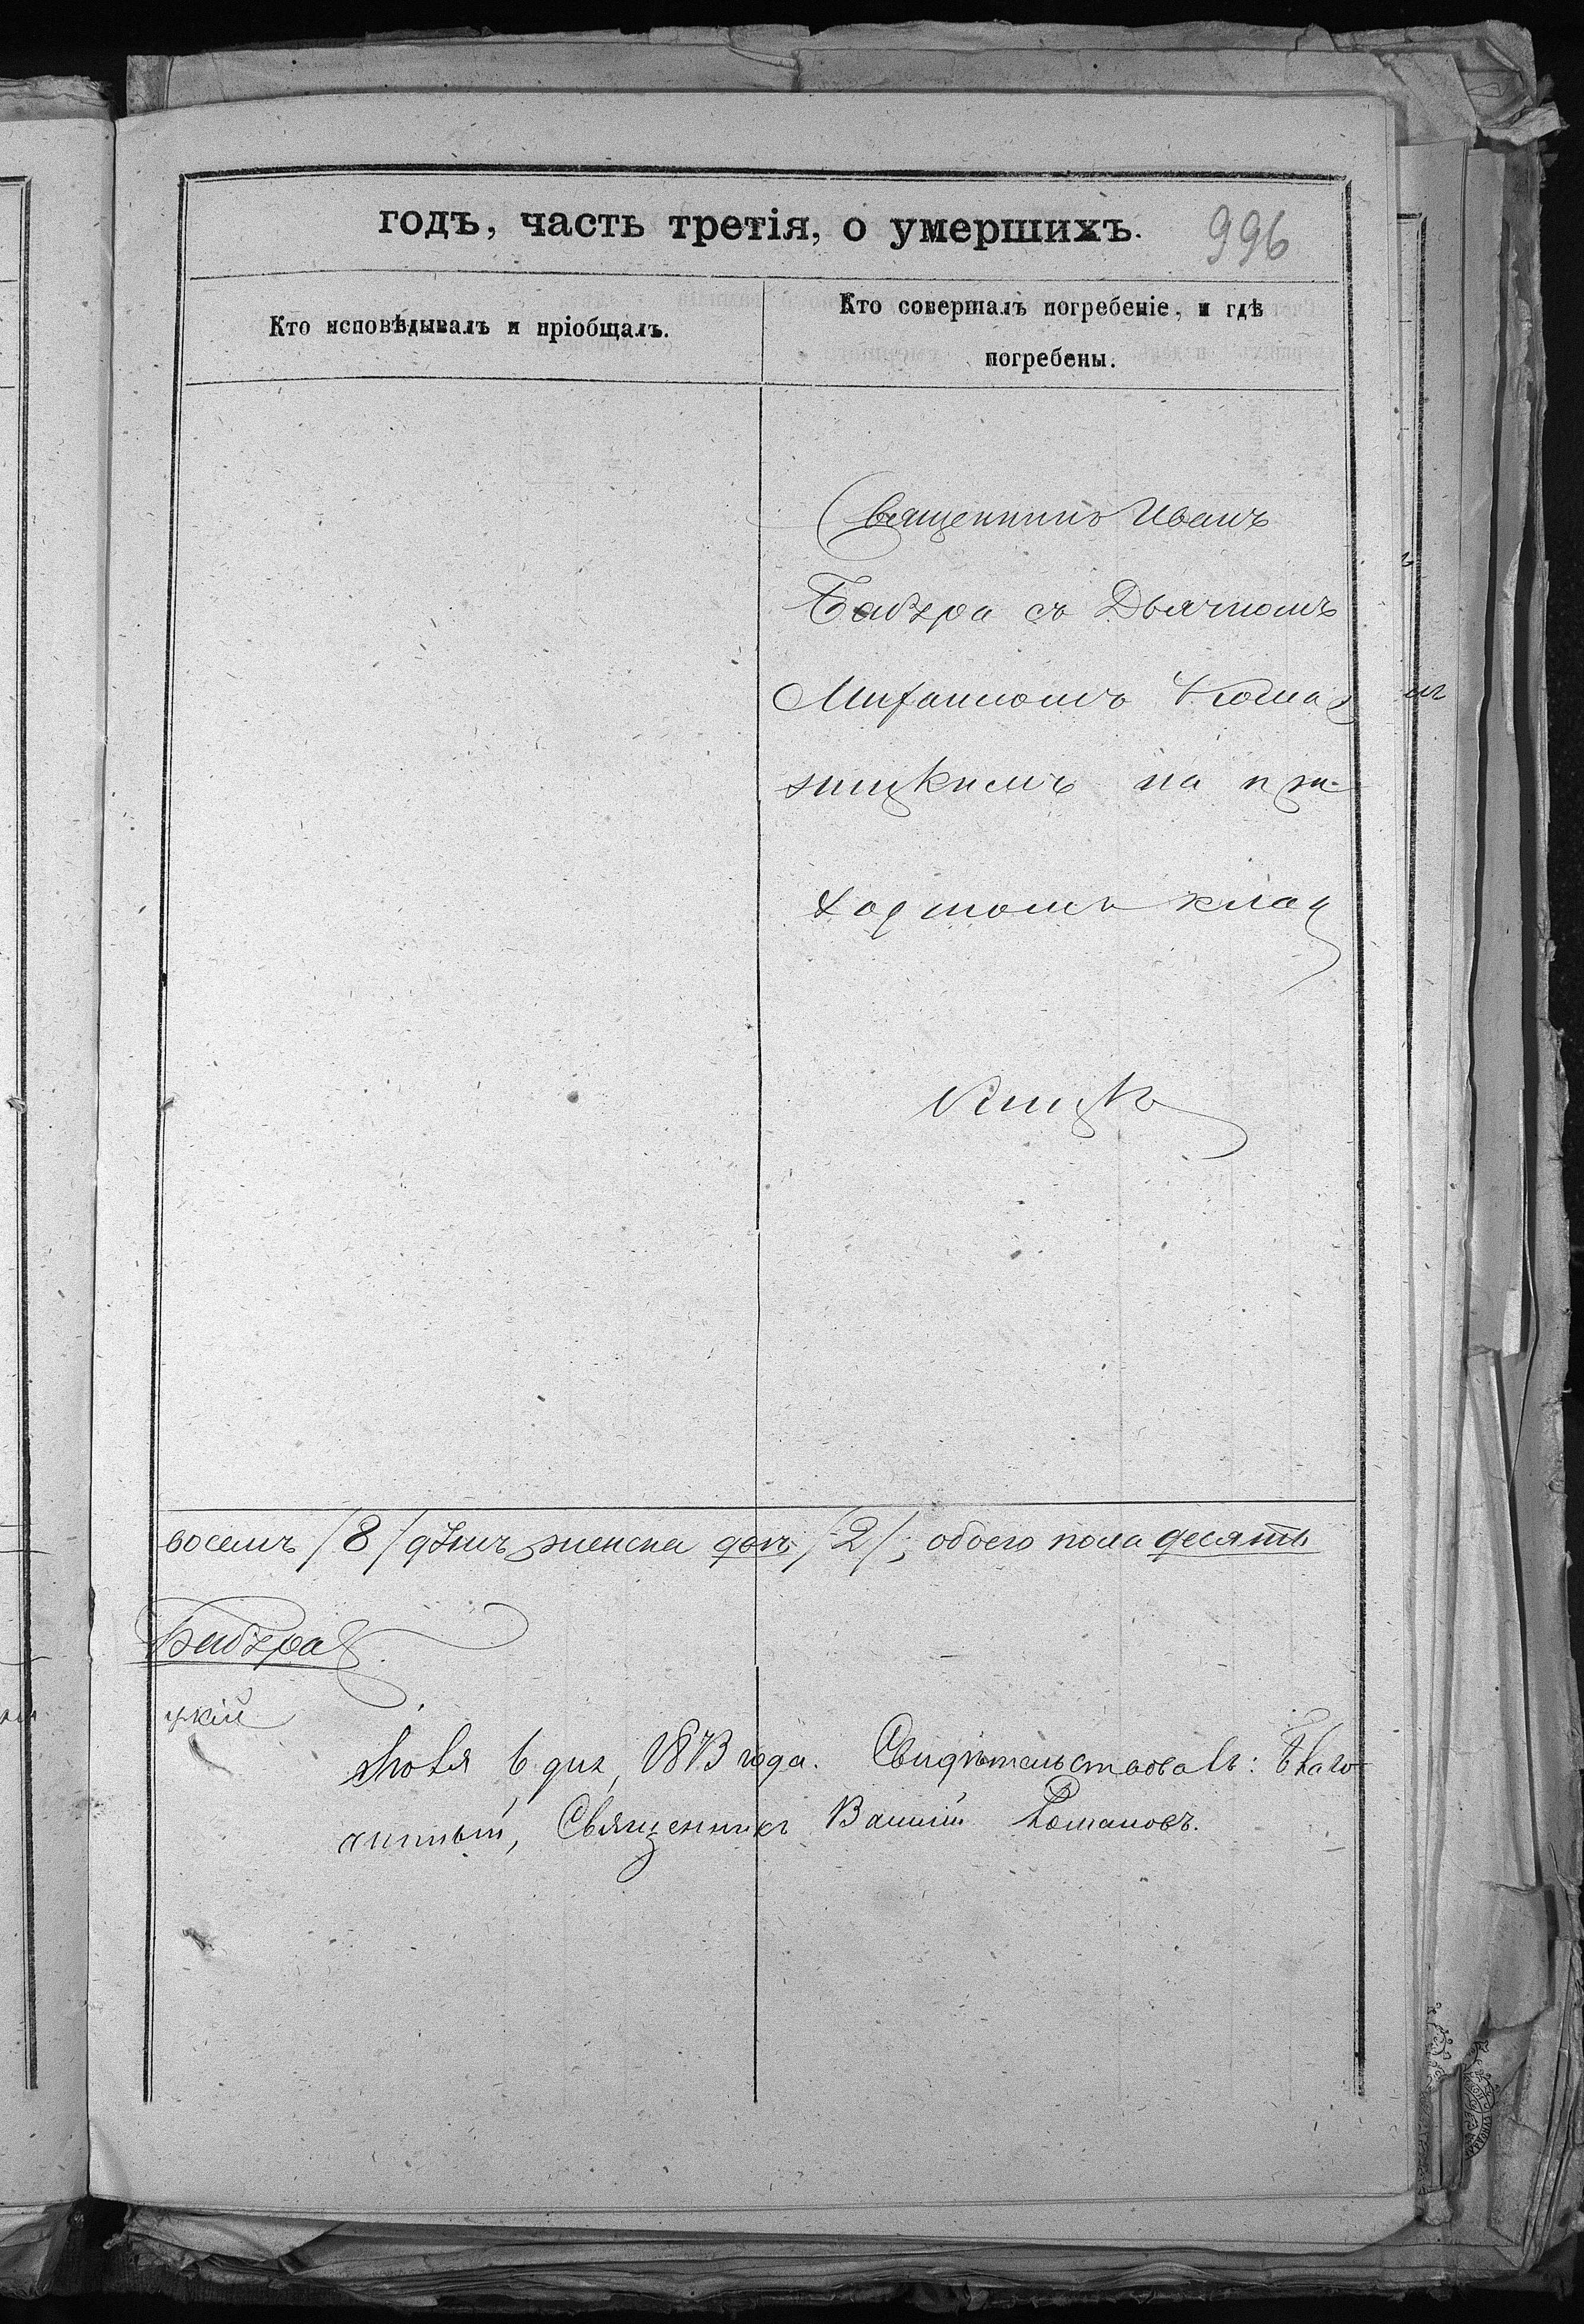 годъ, часть третія, о умершихъ.
996
Кто исповѣдывалъ и пріобщалъ.
Кто совершалъ погребеніе, и гдѣ
погребены.
Священникъ Иванъ
Бабура съ Дьячкомъ
на при-
ходскомъ клад
восемь /8/ женска двѣ /2/; обоего пола десять
Бабура
цкій
Іюля 6 дня, 1873 года. Свидѣтельствовалъ: Благо-
чинный, Священникъ Романовъ.